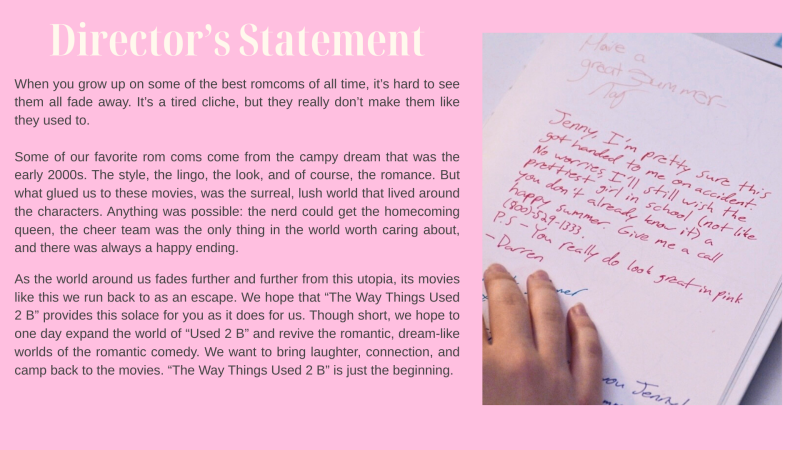 Director's Statement
When you grow up on some of the best romcoms of all time, it's hard to see
them all fade away. It's a tired cliche, but they really don't make them like
they used to.
Some of our favorite rom coms come from the campy dream that was the
early 2000s. The style, the lingo, the look, and of course, the romance. But
what glued us to these movies, was the surreal, lush world that lived around
the characters. Anything was possible: the nerd could get the homecoming
queen, the cheer team was the only thing in the world worth caring about,
and there was always a happy ending.
As the world around us fades further and further from this utopia, its movies
like this we run back to as an escape. We hope that “The Way Things Used
2 B” provides this solace for you as it does for us. Though short, we hope to
one day expand the world of “Used 2 B” and revive the romantic, dream-like
worlds of the romantic comedy. We want to bring laughter, connection, and
camp back to the movies. “The Way Things Used 2 B” is just the beginning.
Have a
great Summer-
Jenny, I'm pretty sure this
got handed to me on accident.
No worries I'll still wish the
prettiest girl in school (not like
you don't already know it) a
happy summer. Give me a call
(800)-529-1333.
P.S - You really do look great in pink
- Darren
you Jenny!